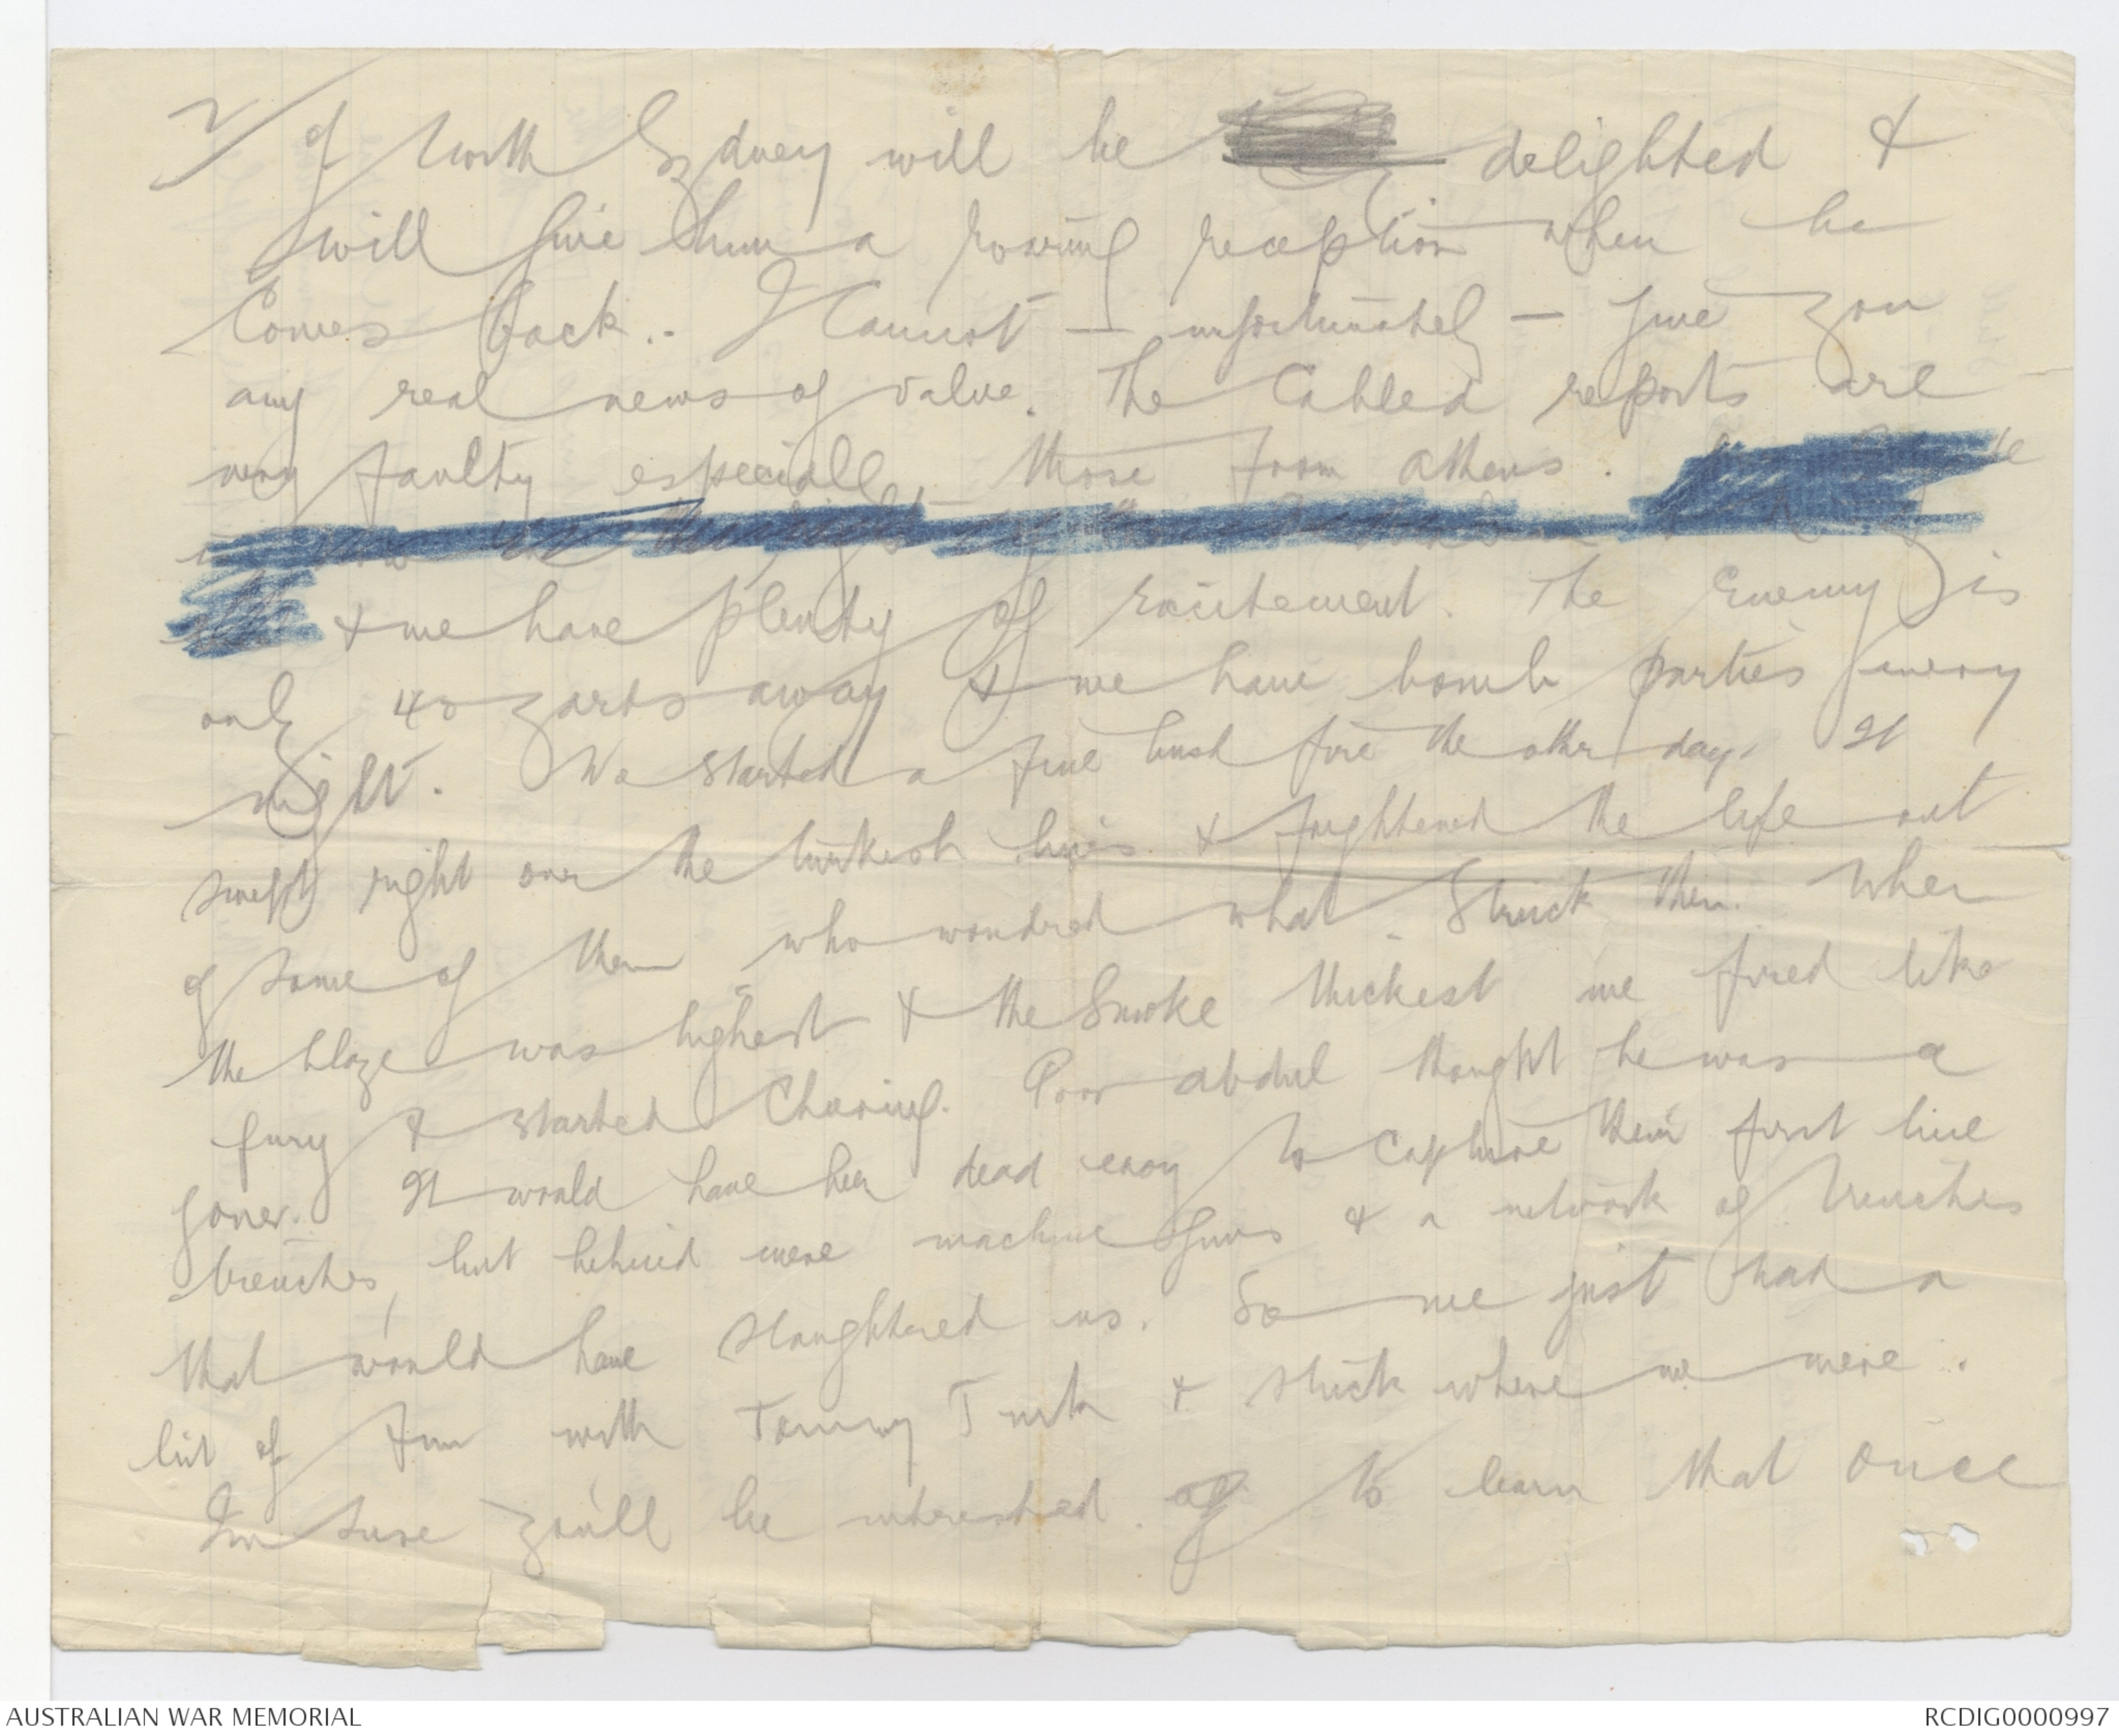 2/ of North Sydney will be delighted &
will give him a roaring reception when he
comes back.. I cannot — unfortunately — give you
any real news of value. The cabled reports are
very faulty especially those from Athens.
& we have plenty of excitement. The enemy is
only 40 yards away & we have bomb parties every
night. We started a fine bush fire the other day. It
swept right over the turkish lines & frightened the life out
of some of them who wondred what struck them. When
the blaze was highest & the smoke thickest we fired like
fury & started cheering. Poor abdul thought he was a
goner. It would have been dead easy to capture their first line
trenches, but behind were machine guns & a network of trenches
that would have slaughtered us. So we just had a
bit of fun with Tommy Turk & stuck where we were.
Im sure you'll be interested to learn that once
AUSTRALIAN WAR MEMORIAL
RCDIG0000997